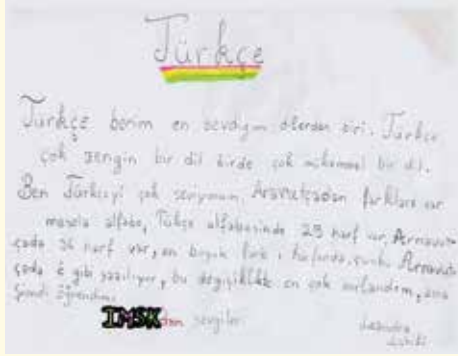 Türkçe
Türkçe benim en sevdiğim dillerden biri. Türkçe
çok zengin bir dil birde çok mükemmel bir dil.
Ben Türkçeyi çok seviyorum. Arnavutçadan farkları var
mesela alfabe, Türkçe alfabesinde 29 harf var, Arnavut
çada 36 harf var, en büyük fark harfında, çunku Arnavut
çada ë gibi yazılıyor, bu değişiklikte en çok zorlandım, ama
şimdi öğrendim.
IMSK dan sevgiler